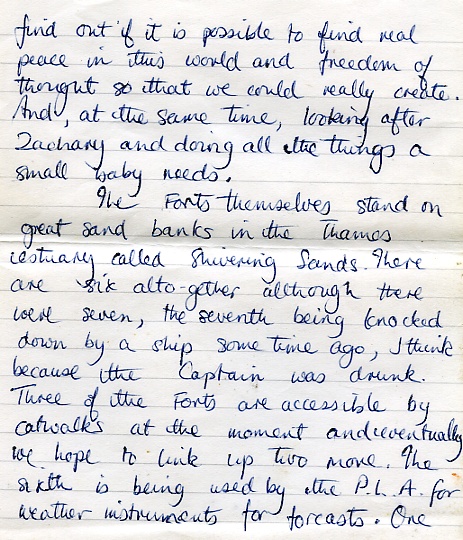 find out if it is possible to find real
peace in this world and freedom of
thought so that we could really create.
And, at the same time, looking after
Zachary and doing all the things a
small baby needs.
The Forts themselves stand on
great sand banks in the Thames
estuary called Shivering Sands. There
are six alto-gether although there
were seven, the seventh being knocked
down by a ship some time ago, I think
because the Captain was drunk.
Three of the Forts are accessible by
catwalks at the moment and eventually
we hope to link up two more. The
sixth is being used by the P.L.A. for
weather instruments for forcasts. One